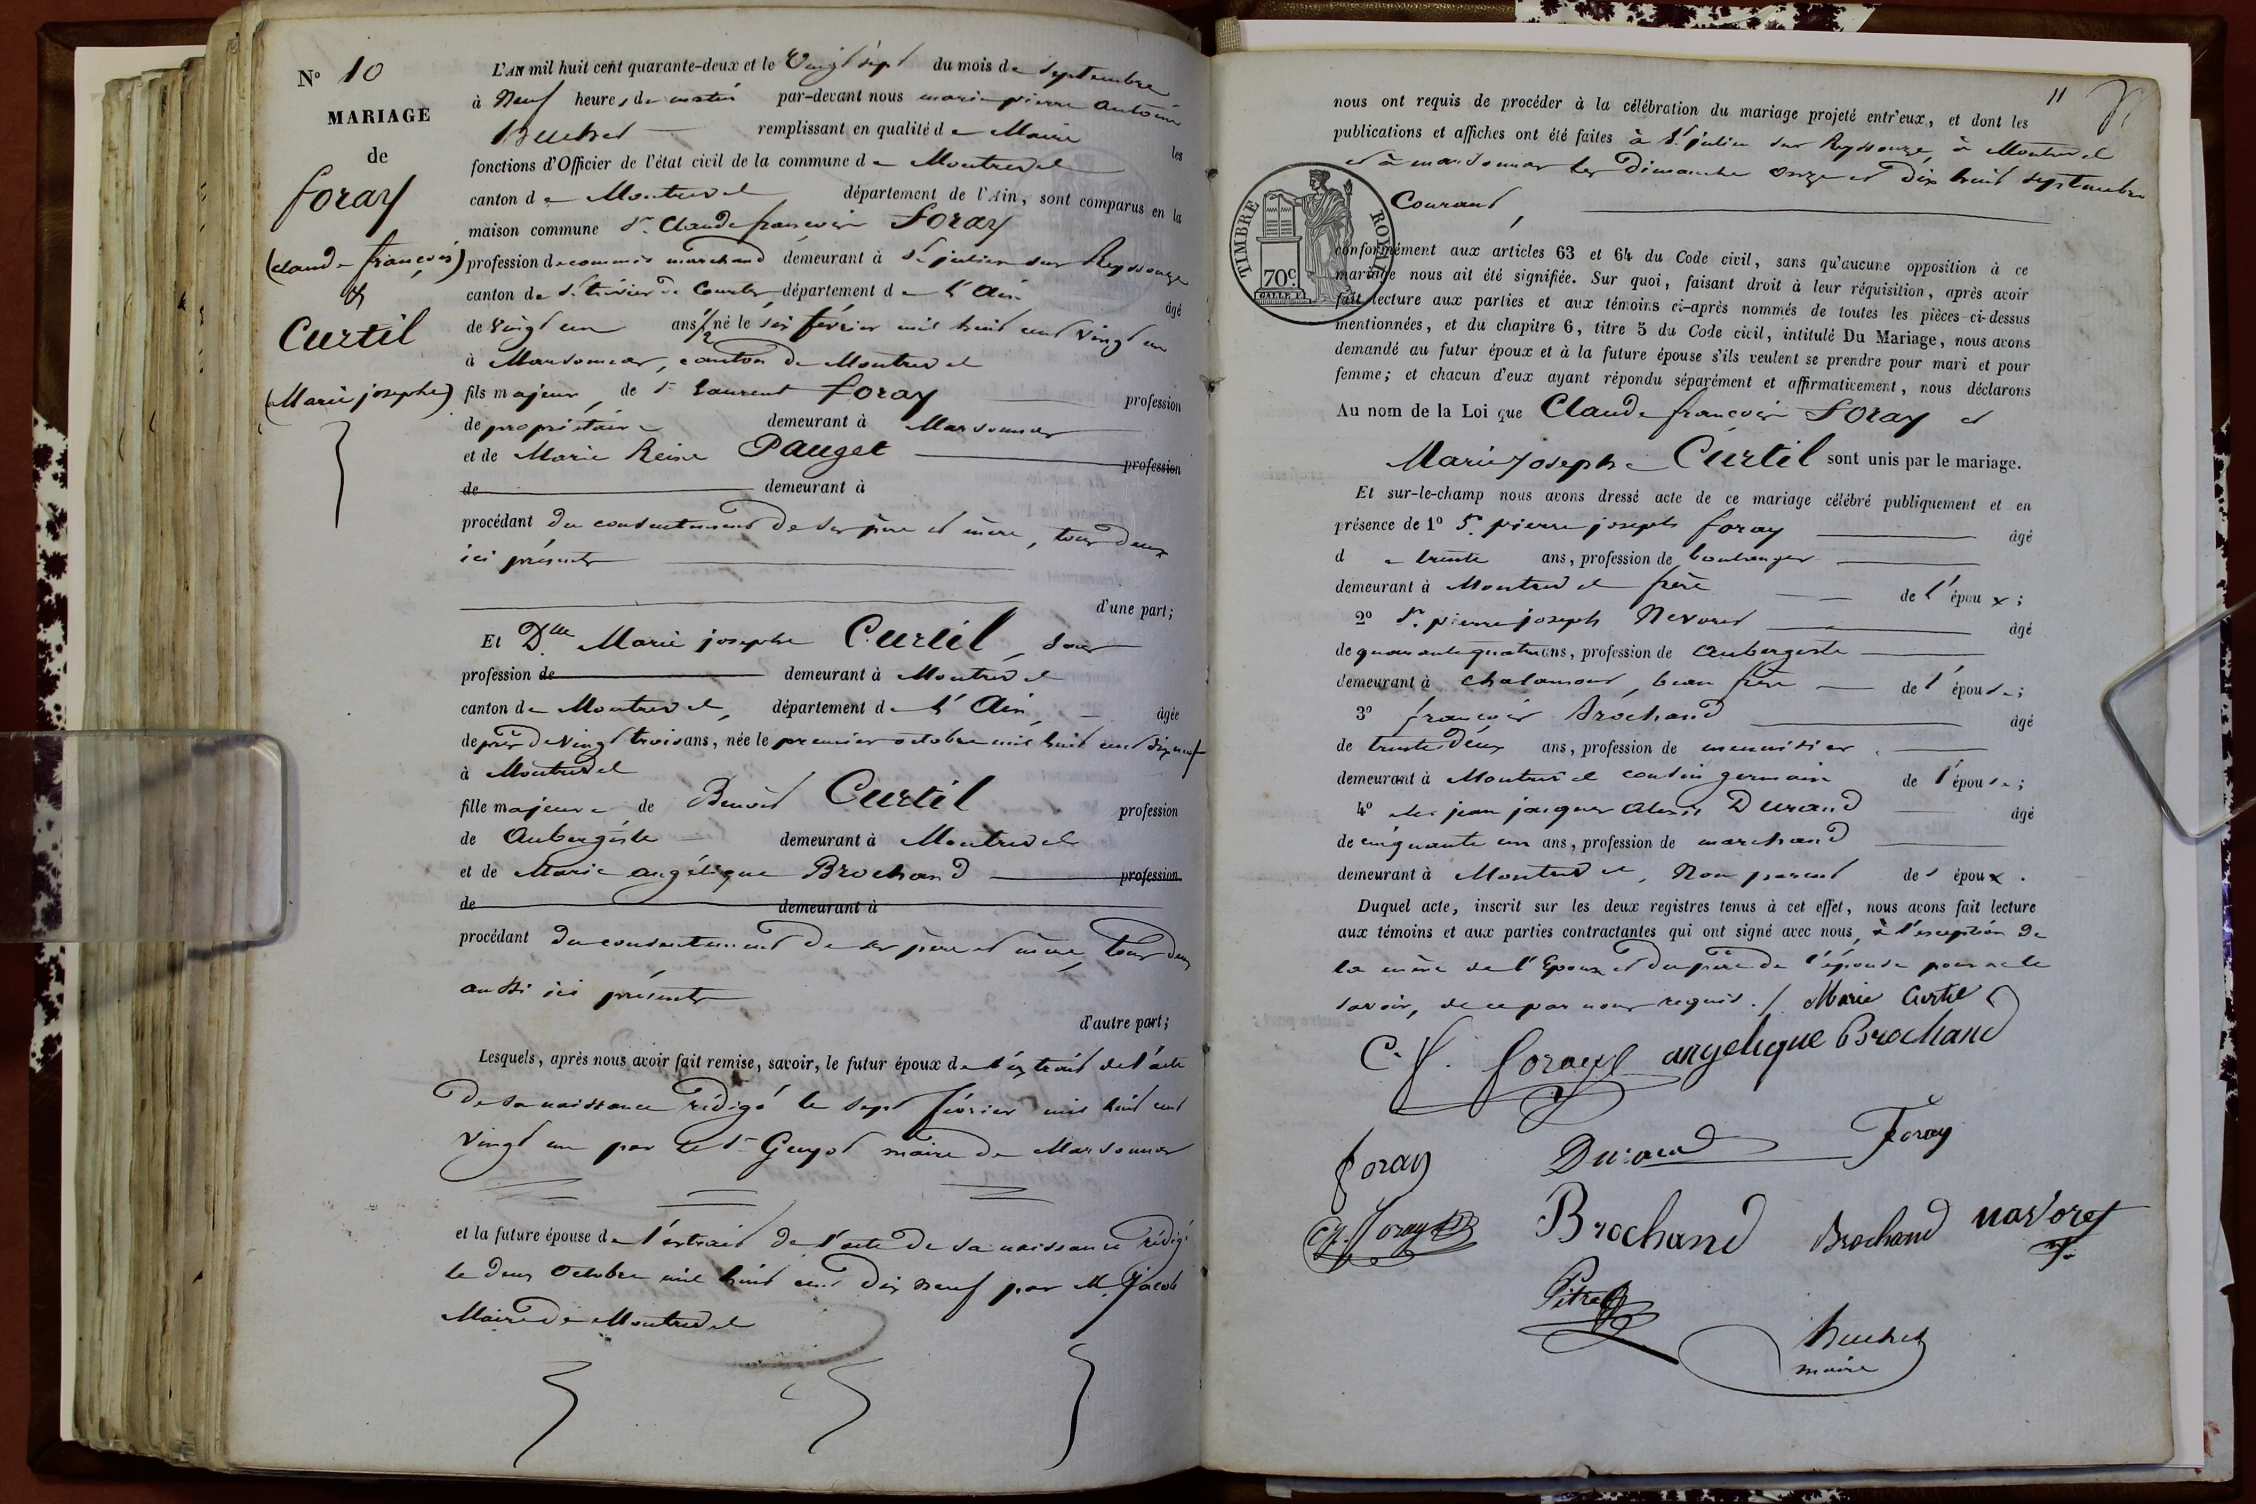 N° 10
MARIAGE
de
foray
(claude françois)
&
Curtil
(Marie josephe)
L'AN mil huit cent quarante-deux et le Vingt sept du mois de septembre
à Neuf heures du matin par-devant nous marie pierre antoine
Buchet remplissant en qualité de Maire les
fonctions d'Officier de l'état civil de la commune de Montrevel
canton de Montrevel département de l'Ain, sont comparus en la
maison commune Sr. Claude françois Foray
profession de commis marchand demeurant à St julien sur Reyssouze
canton de St. trivier de Courtes, département de l'Ain âgé
de vingt un ans 1/2 né le six février mil huit cent vingt un
à Marsonnas, canton de Montrevel
fils majeur, de Sr Laurent foray profession
de propriétaire demeurant à Marsonnas
et de Marie Reine Pauget profession
de demeurant à
procédant du consentement de ses père et mère, tous deux
ici présents
d'une part;
Et Dlle Marie josephe Curtil, sans
profession de demeurant à Montrevel
canton de Montrevel, département de l'Ain, âgée
de près de vingt trois ans, née le premier octobre mil huit cent dix neuf
à Montrevel
fille majeure de Benoit Curtil profession
de Aubergiste demeurant à Montrevel
et de Marie angélique Brochand profession
de demeurant à
procédant du consentement de ses père et mère, tous deux
aussi ici présents
d'autre part;
Lesquels, après nous avoir fait remise, savoir, le futur époux de l'extrait de l'acte
de sa naissance rédigé le sept février mil huit cent
vingt un par le Sr Guyot maire de Marsonnas
et la future épouse de l'extrait de l'acte de sa naissance rédigé
le deux Octobre mil huit cent dix neuf par M. Jacob
Maire de Montrevel
11
nous ont requis de procéder à la célébration du mariage projeté entr'eux, et dont les
publications et affiches ont été faites à St. julien sur Reyssouze, à Montrevel
et à marsonnas les dimanche onze et dix huit septembre
Courant,
TIMBRE ROYAL
70c
conformément aux articles 63 et 64 du Code civil, sans qu'aucune opposition à ce
mariage nous ait été signifiée. Sur quoi, faisant droit à leur réquisition, après avoir
fait lecture aux parties et aux témoins ci-après nommés de toutes les pièces ci-dessus
mentionnées, et du chapitre 6, titre 5 du Code civil, intitulé Du Mariage, nous avons
demandé au futur époux et à la future épouse s'ils veulent se prendre pour mari et pour
femme; et chacun d'eux ayant répondu séparément et affirmativement, nous déclarons
Au nom de la Loi que Claude françois Foray et
Marie Josephe Curtil sont unis par le mariage.
Et sur-le-champ nous avons dressé acte de ce mariage célébré publiquement et en
présence de 1° Sr. pierre joseph foray âgé
de trente ans, profession de boulanger
demeurant à Montrevel frère de l'époux;
2° Sr. pierre joseph Nevoret âgé
de quarante quatre ans, profession de Aubergiste
demeurant à chalamont, beau frère de l'épouse;
3° françois Brochand âgé
de trente deux ans, profession de menuisier
demeurant à Montrevel cousin germain de l'épouse;
4° jean jacques alexis Durand âgé
de cinquante un ans, profession de marchand
demeurant à Montrevel, Non parent des époux.
Duquel acte, inscrit sur les deux registres tenus à cet effet, nous avons fait lecture
aux témoins et aux parties contractantes qui ont signé avec nous, à l'exception de
la mère de l'Epoux et du père de l'épouse pour ne le
savoir, de ce par nous requis. / Marie Curtil
C. f. foray angelique Brochand
foray Durand Foray
Cf. foray Brochand Brochand navoret
Buchet
maire